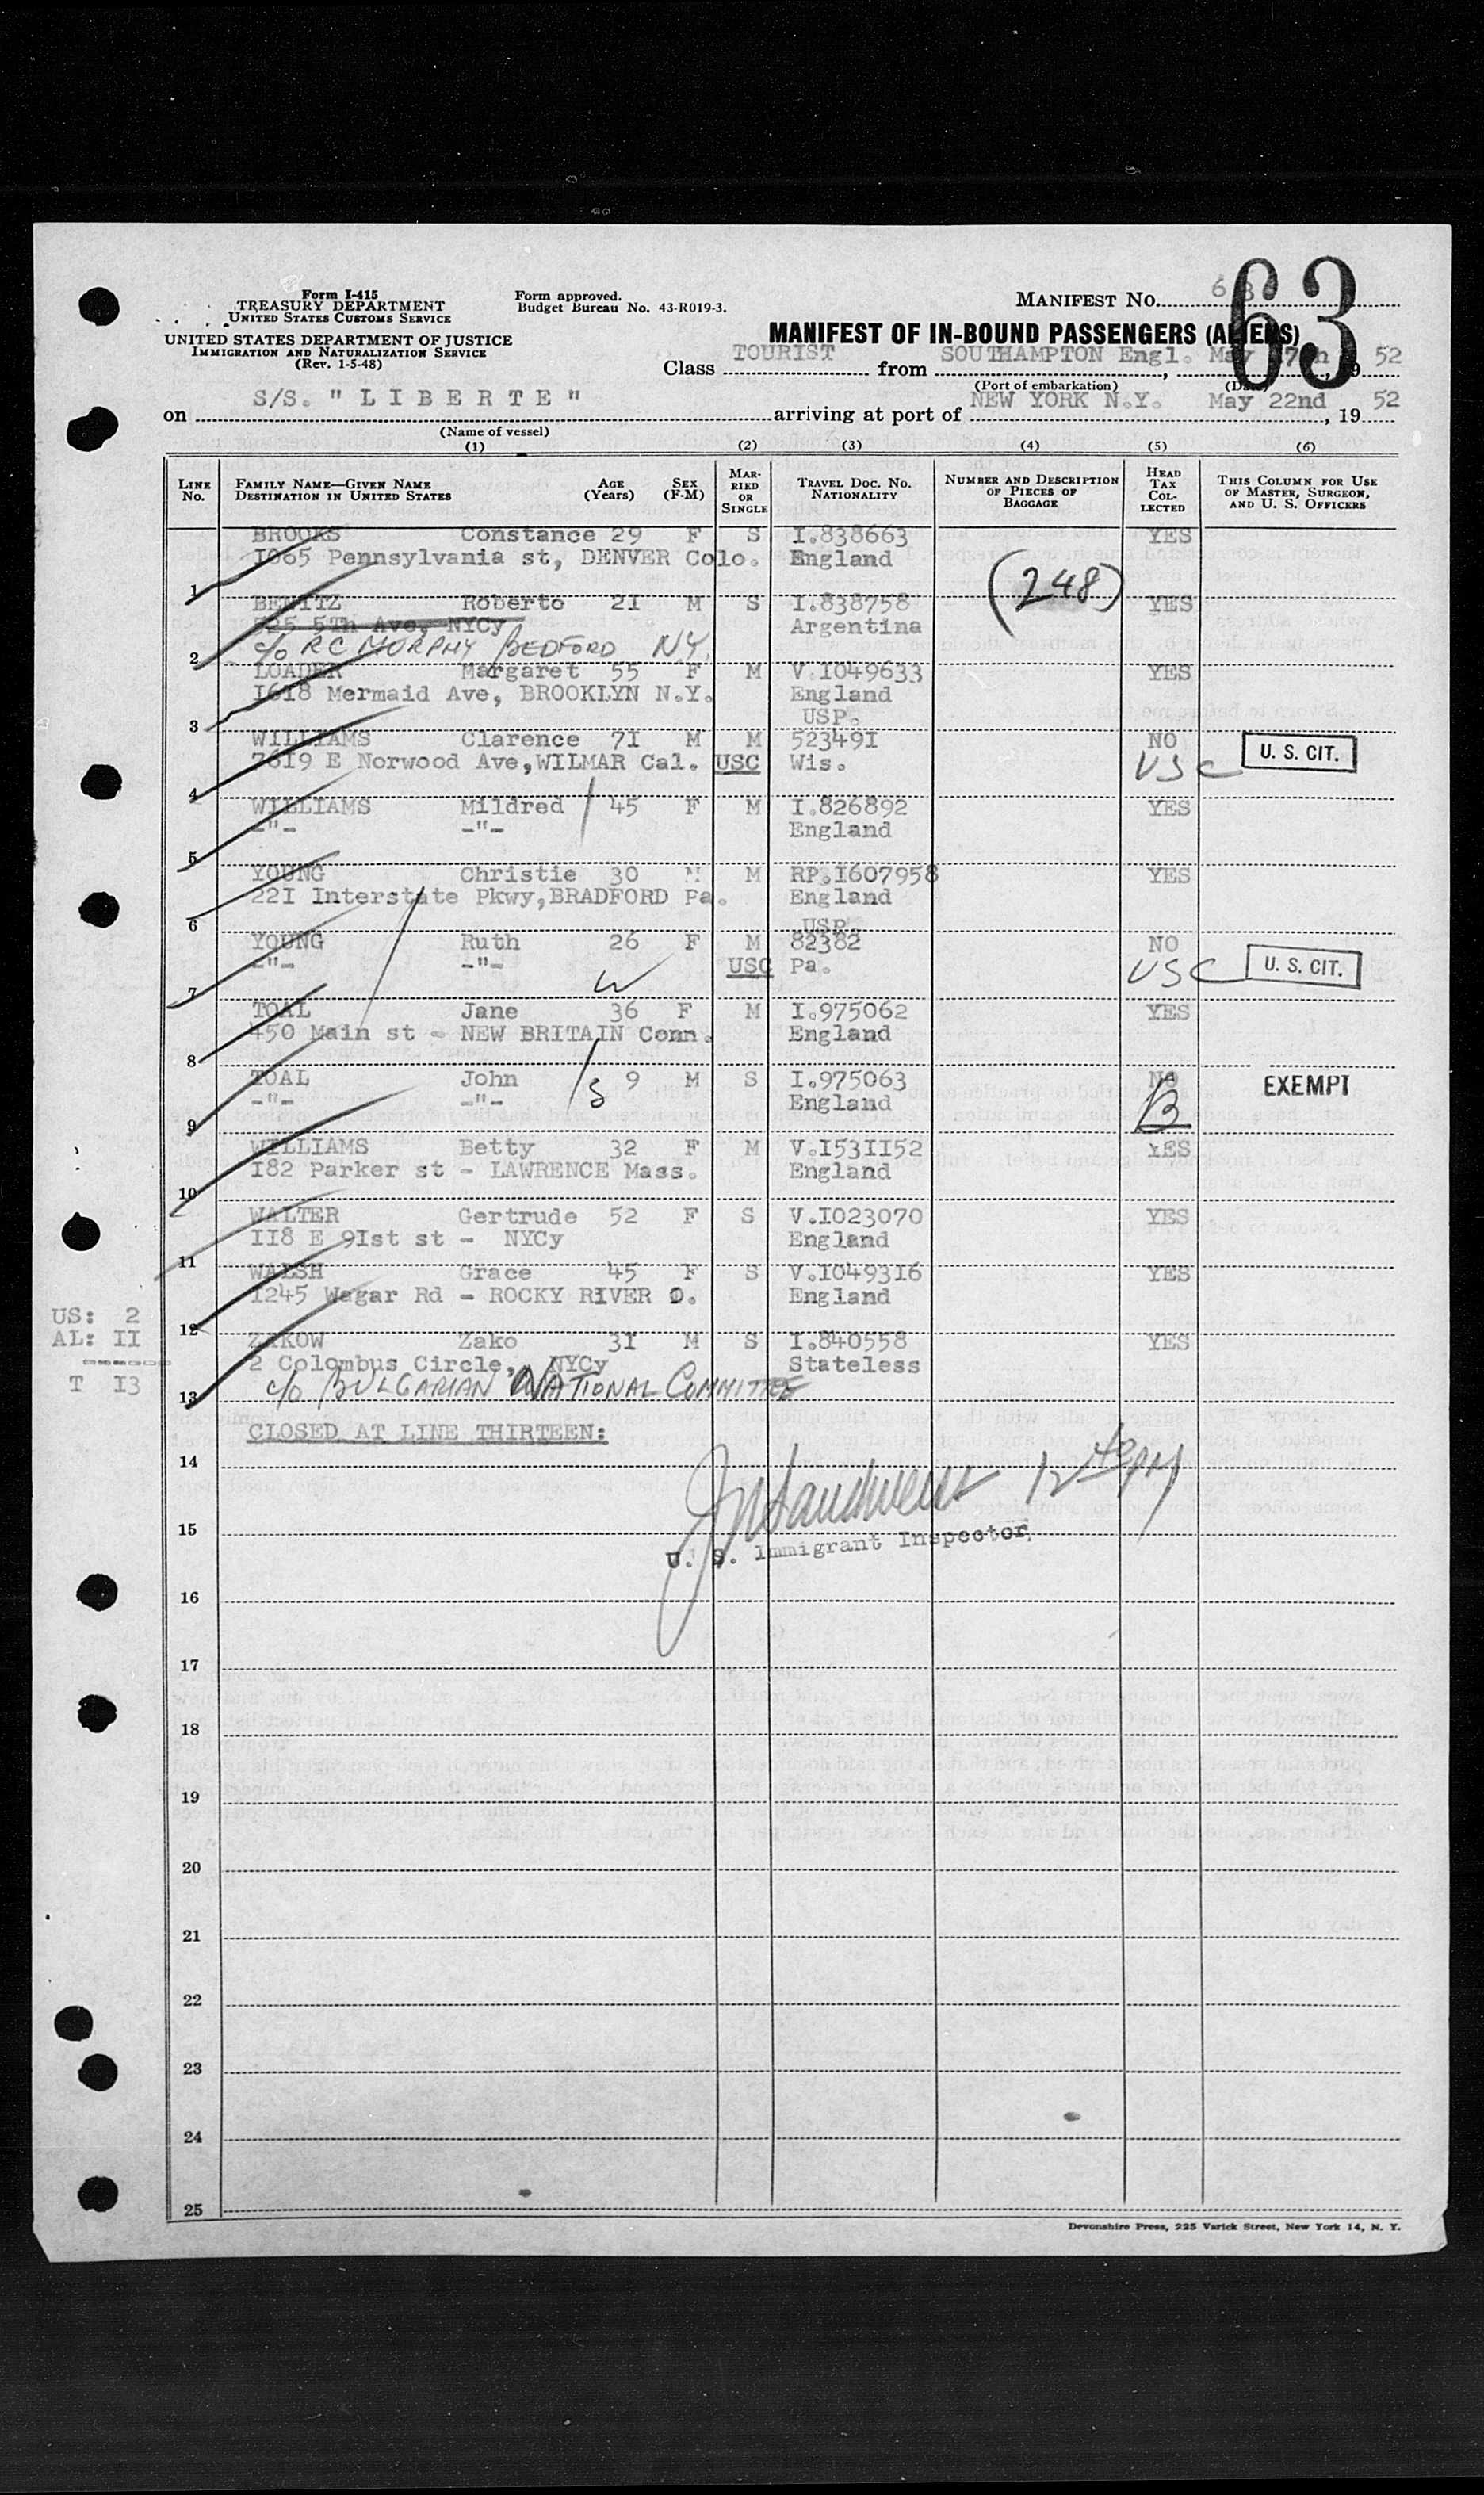 Form I-415
TREASURY DEPARTMENT
UNITED STATES CUSTOMS SERVICE
UNITED STATES DEPARTMENT OF JUSTICE
IMMIGRATION AND NATURALIZATION SERVICE
(Rev. 1-5-48)
Form approved.
Budget Bureau No. 43-R019-3.
MANIFEST NO. 63
63
MANIFEST OF IN-BOUND PASSENGERS (ALIENS)
Class TOURIST from SOUTHAMPTON Engl. , May 17th , 19 52
(Port of embarkation) (Date)
on S/S. " L I B E R T E " arriving at port of NEW YORK N.Y. May 22nd , 19 52
(Name of vessel)
(1) (2) (3) (4) (5) (6)
LINE No. FAMILY NAME—GIVEN NAME DESTINATION IN UNITED STATES AGE (Years) SEX (F-M) MARRIED OR SINGLE TRAVEL DOC. NO. NATIONALITY NUMBER AND DESCRIPTION OF PIECES OF BAGGAGE HEAD TAX COLLECTED THIS COLUMN FOR USE OF MASTER, SURGEON, AND U. S. OFFICERS
BROOKS Constance 29 F S I.838663 YES
1 I065 Pennsylvania st, DENVER Colo. England
BENITZ Roberto 2I M S I.838758 (248) YES
525 5Th Ave, NYCy Argentina
2 c/o RC MURPHY BEDFORD N.Y.
LOADER Margaret 55 F M V.I049633 YES
3 I6I8 Mermaid Ave, BROOKLYN N.Y. England
USP.
WILLIAMS Clarence 7I M M 52349I NO
4 76I9 E Norwood Ave,WILMAR Cal. USC Wis. USC U. S. CIT.
WILLIAMS Mildred 45 F M I.826892 YES
5 -"- -"- England
YOUNG Christie 30 M M RP.I607958 YES
6 22I Interstate Pkwy,BRADFORD Pa. England
USP.
YOUNG Ruth 26 F M 82382 NO
7 -"- -"- USC Pa. USC U. S. CIT.
W
TOAL Jane 36 F M I.975062 YES
8 450 Main st - NEW BRITAIN Conn. England
TOAL John S 9 M S I.975063 NO EXEMPT
9 -"- -"- England B
WILLIAMS Betty 32 F M V.I53II52 YES
10 I82 Parker st - LAWRENCE Mass. England
WALTER Gertrude 52 F S V.I023070 YES
11 II8 E 9Ist st - NYCy England
WALSH Grace 45 F S V.I0493I6 YES
12 I245 Wagar Rd - ROCKY RIVER O. England
ZAKOW Zako 3I M S I.840558 YES
2 Colombus Circle, NYCy Stateless
13 c/o BULGARIAN NATIONAL COMMITTEE
US: 2
AL: II
------
T I3
CLOSED AT LINE THIRTEEN:
14
12 40 PM
15
U. S. Immigrant Inspector.
16
17
18
19
20
21
22
23
24
25
Devonshire Press, 225 Varick Street, New York 14, N. Y.